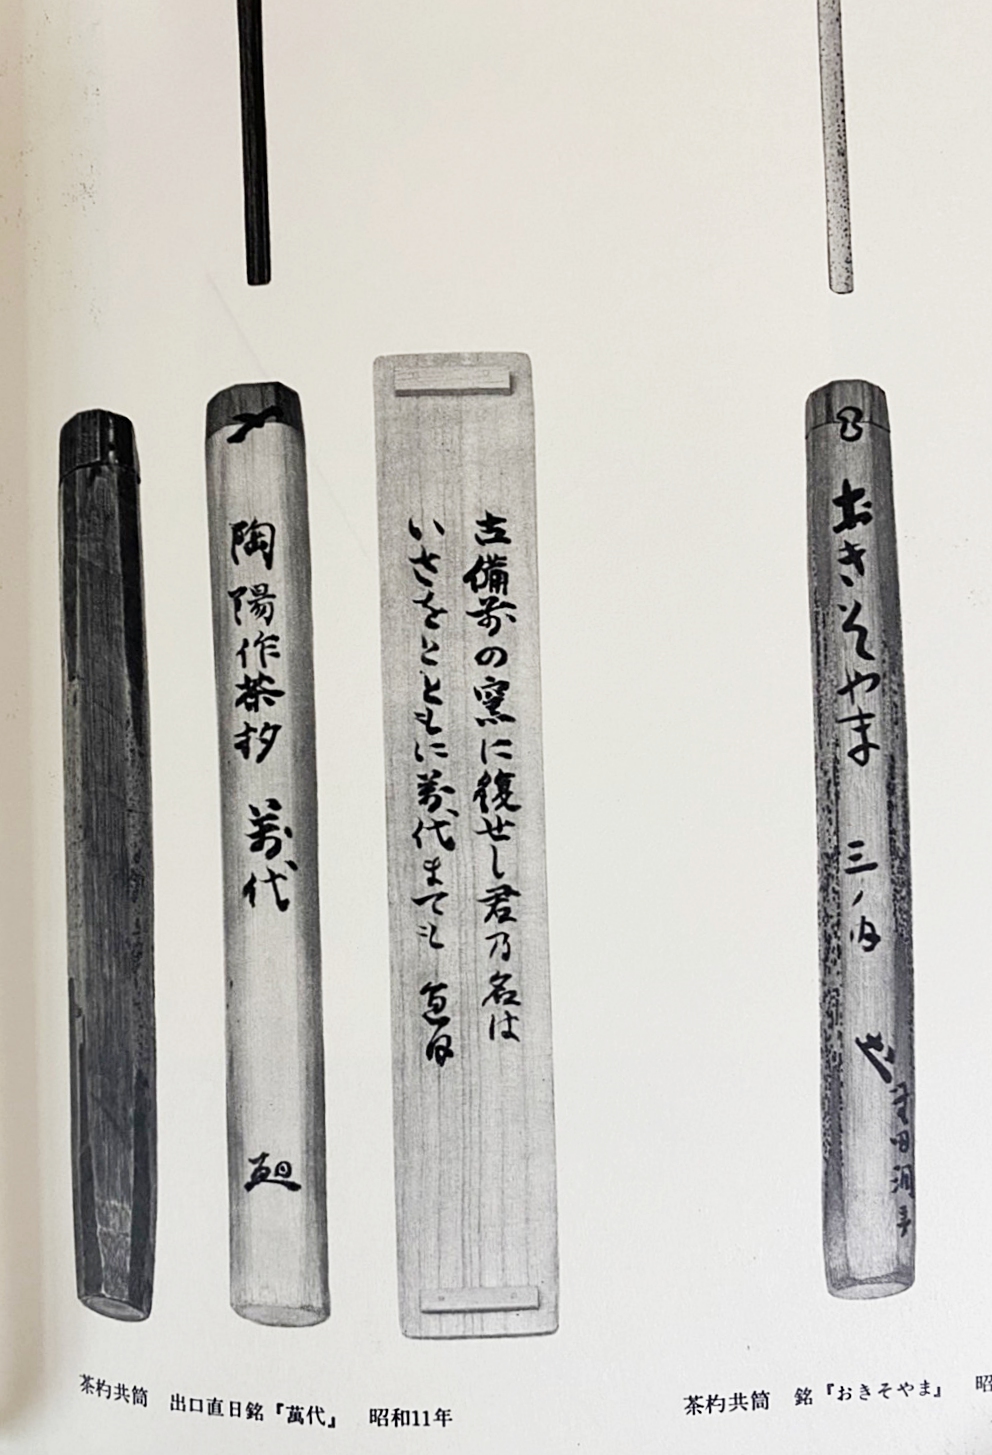 陶陽作茶杓　萬代
直日
古備前の窯に復せし君乃名は
いさをとともに萬代まても　直日
おきそやま　三ノ内
茶杓共筒　出口直日銘『萬代』　昭和11年
茶杓共筒　銘『おきそやま』　昭